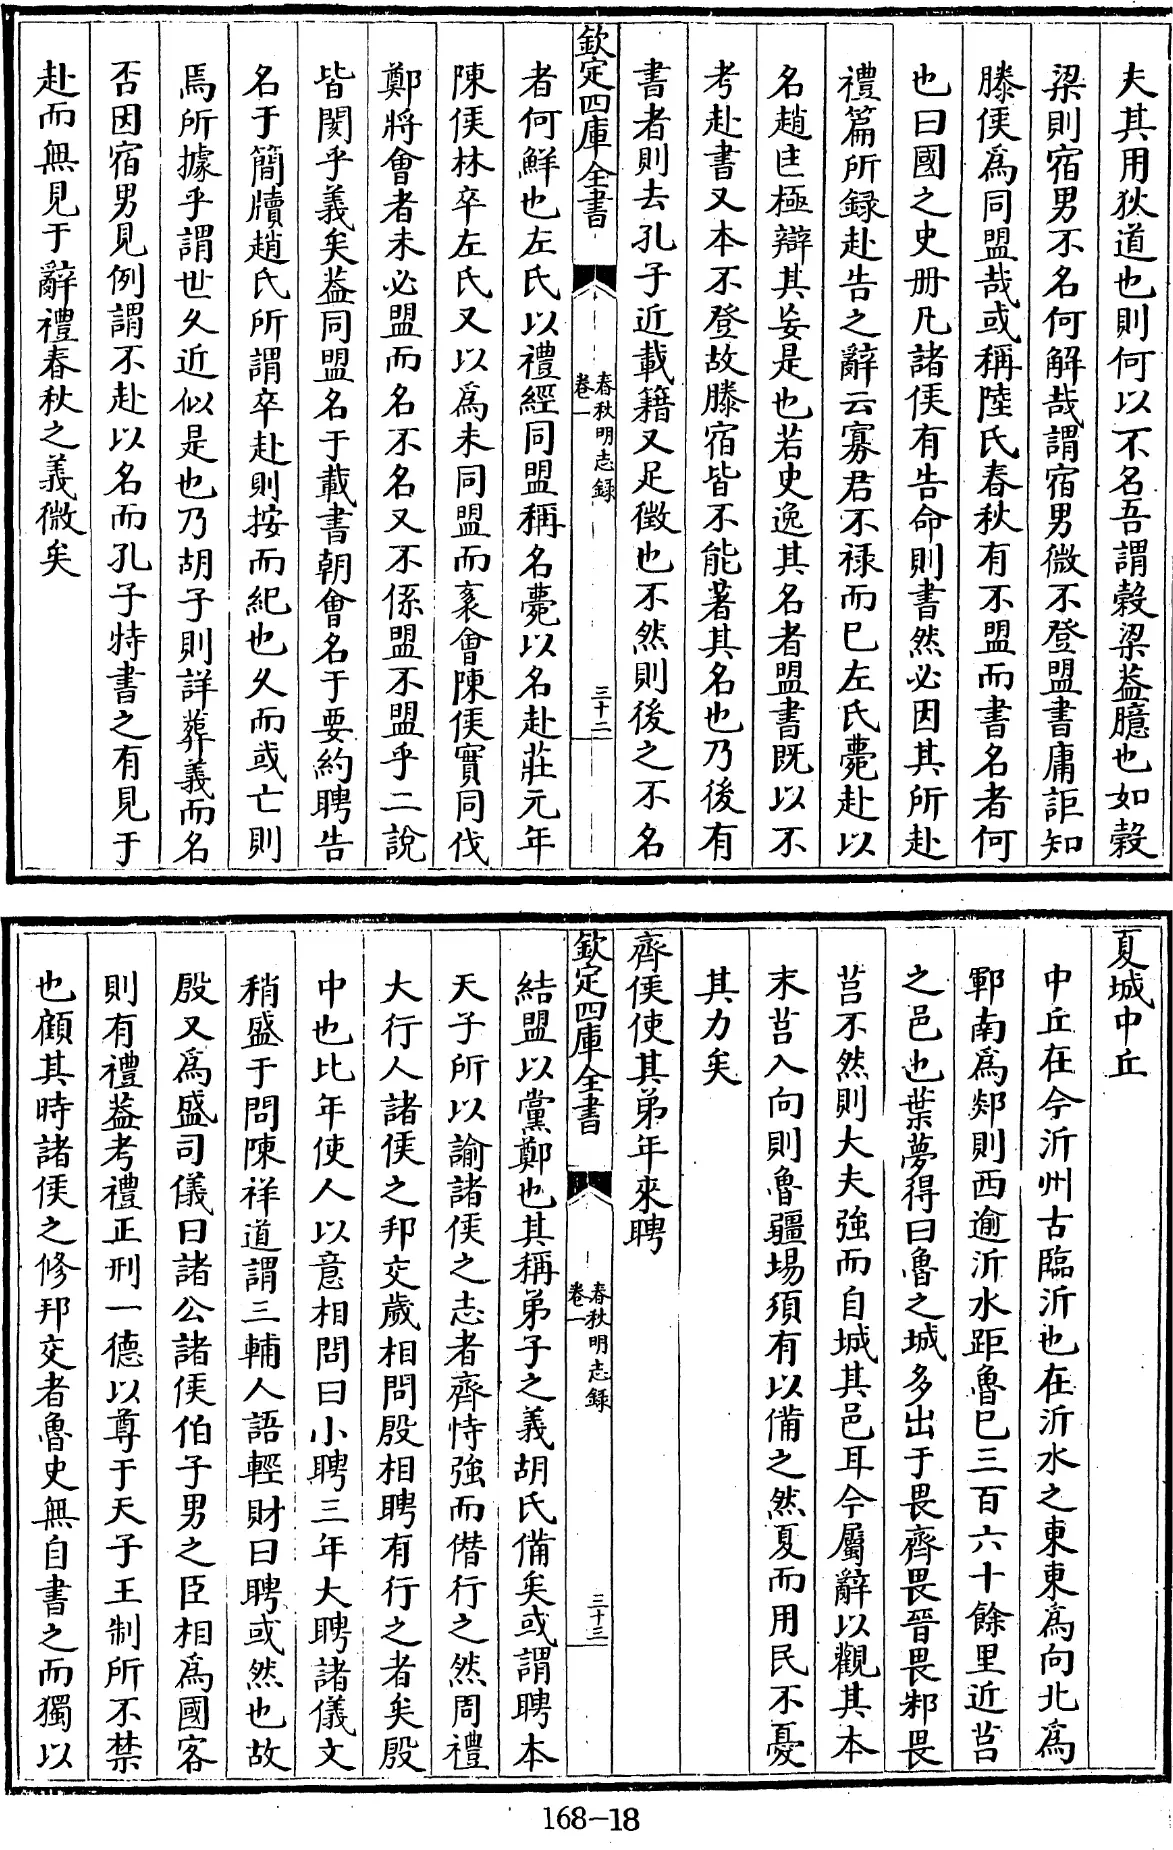 夫其用狄道也則何以不名吾謂穀梁葢臆也如穀
梁則宿男不名何解哉謂宿男微不登盟書庸詎知
滕侯爲同盟哉或稱陸氏春秋有不盟而書名者何
也曰國之史册凡諸侯有告命則書然必因其所赴
禮篇所録赴告之辭云寡君不禄而已左氏薨赴以
名趙匡極辯其妄是也若史逸其名者盟書既以不
考赴書又本不登故滕宿皆不能著其名也乃後有
書者則去孔子近載籍又足徵也不然則後之不名
欽定四庫全書
春秋明志録
卷一
三十二
者何鮮也左氏以禮經同盟稱名薨以名赴莊元年
陳侯林卒左氏又以爲未同盟而袲會陳侯實同伐
鄭將會者未必盟而名不名又不係盟不盟乎二說
皆閡乎義矣葢同盟名于載書朝會名于要約聘告
名于簡牘趙氏所謂卒赴則按而紀也乆而或亡則
焉所據乎謂世乆近似是也乃胡子則詳葬義而名
否因宿男見例謂不赴以名而孔子特書之有見于
赴而無見于辭禮春秋之義微矣
夏城中丘
中丘在今沂州古臨沂也在沂水之東東爲向北爲
鄆南爲郯則西逾沂水距魯已三百六十餘里近莒
之邑也葉夢得曰魯之城多出于畏齊畏晉畏邾畏
莒不然則大夫強而自城其邑耳今屬辭以觀其本
末莒入向則魯疆場須有以備之然夏而用民不憂
其力矣
齊侯使其弟年來聘
欽定四庫全書
春秋明志録
卷一
三十三
結盟以黨鄭也其稱弟子之義胡氏備矣或謂聘本
天子所以諭諸侯之志者齊恃強而僭行之然周禮
大行人諸侯之邦交歲相問殷相聘有行之者矣殷
中也比年使人以意相問曰小聘三年大聘諸儀文
稍盛于問陳祥道謂三輔人語輕財曰聘或然也故
殷又爲盛司儀曰諸公諸侯伯子男之臣相爲國客
則有禮葢考禮正刑一德以尊于天子王制所不禁
也顧其時諸侯之修邦交者魯史無自書之而獨以
168-18